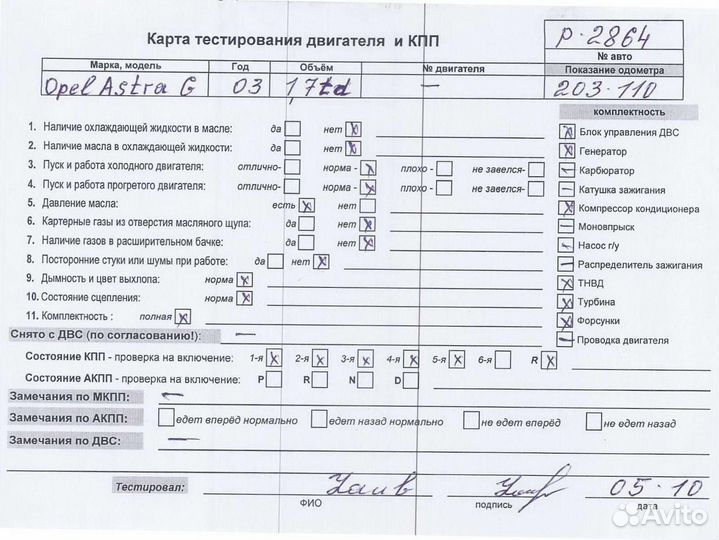 Карта тестирования двигателя и КПП
P-2864
№ авто
Марка, модель Год Объём № двигателя Показание одометра
Opel Astra G 03 1,7td — 203·110
комплектность
1. Наличие охлаждающей жидкости в масле: да нет X
2. Наличие масла в охлаждающей жидкости: да нет X
3. Пуск и работа холодного двигателя: отлично- норма - X плохо - не завелся-
4. Пуск и работа прогретого двигателя: отлично- норма - X плохо - не завелся-
5. Давление масла: есть X нет
6. Картерные газы из отверстия масляного щупа: да нет X
7. Наличие газов в расширительном бачке: да нет X
8. Посторонние стуки или шумы при работе: да нет X
9. Дымность и цвет выхлопа: норма X
10. Состояние сцепления: норма X
11. Комплектность : полная X
X Блок управления ДВС
X Генератор
— Карбюратор
— Катушка зажигания
X Компрессор кондиционера
— Моновпрыск
— Насос г/у
— Распределитель зажигания
X ТНВД
X Турбина
X Форсунки
— Проводка двигателя
Снято с ДВС (по согласованию!): —
Состояние КПП - проверка на включение: 1-я X 2-я X 3-я X 4-я X 5-я X 6-я R X
Состояние АКПП - проверка на включение: P R N D
Замечания по МКПП: —
Замечания по АКПП: едет вперёд нормально едет назад нормально не едет вперёд не едет назад
Замечания по ДВС: —
Тестировал: 05·10
ФИО подпись дата
Avito